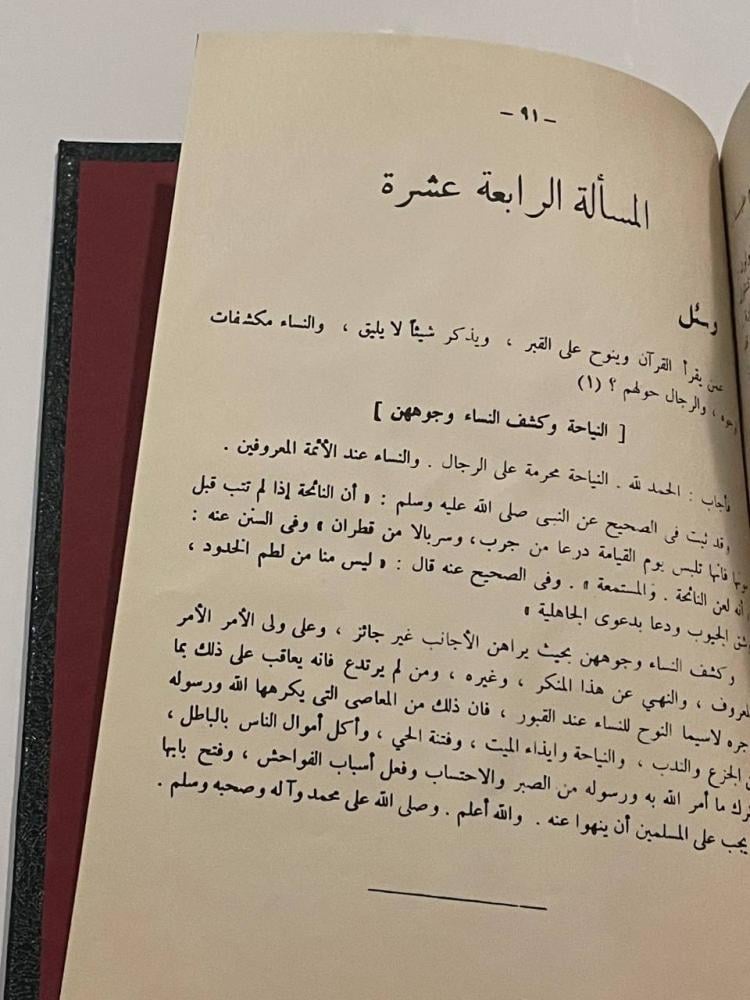 – ٩١ –
المسألة الرابعة عشرة
وسئل
عمن يقرأ القرآن وينوح على القبر ، ويذكر شيئاً لا يليق ، والنساء مكشفات
، والرجال حولهم ؟ (١)
[ النياحة وكشف النساء وجوههن ]
فأجاب : الحمد لله . النياحة محرمة على الرجال . والنساء عند الأئمة المعروفين .
وقد ثبت فى الصحيح عن النبى صلى الله عليه وسلم : « أن النائحة إذا لم تتب قبل
موتها فانها تلبس يوم القيامة درعا من جرب، وسربالا من قطران » وفى السنن عنه :
أنه لعن النائحة . والمستمعة » . وفى الصحيح عنه قال : « ليس منا من لطم الخدود ،
وشق الجيوب ودعا بدعوى الجاهلية »
وكشف النساء وجوههن بحيث يراهن الأجانب غير جائز ، وعلى ولى الأمر الأمر
، والنهي عن هذا المنكر ، وغيره ، ومن لم يرتدع فانه يعاقب على ذلك بما
لاسيما النوح للنساء عند القبور ، فان ذلك من المعاصى التى يكرهها الله ورسوله
الجزع والندب ، والنياحة وايذاء الميت ، وفتنة الحي ، وأكل أموال الناس بالباطل ،
ما أمر الله به ورسوله من الصبر والاحتساب وفعل أسباب الفواحش ، وفتح بابها
يجب على المسلمين أن ينهوا عنه . والله أعلم . وصلى الله على محمد وآله وصحبه وسلم .